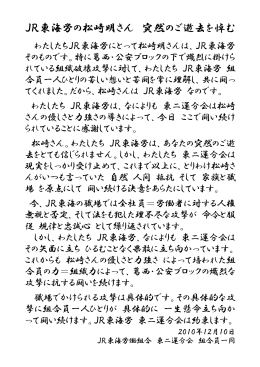 JR東海労の松崎明さん 突然のご逝去を悼む
わたしたちJR東海労にとって松崎明さんは、JR東海労
そのものです。特に葛西・公安ブロックの下で熾烈に掛けら
れている組織破壊攻撃に対して、わたしたちJR東海労 組
合員一人ひとりの苦しい想いと苦闘を常に理解し、共に闘っ
てくれました。だから、松崎さんは JR東海労 なのです。
わたしたちJR東海労は、なによりも 東二運分会は松崎
さんの優しさと力強さの導きによって、今日 ここで闘い続け
られていることに感謝しています。
松崎さん。わたしたち JR東海労は、あなたの突然のご逝
去をとても信じられません。しかし、わたしたち 東二運分会は
現実をしっかり受け止めて、これまで以上に、とりわけ松崎さ
んがいつも言っていた 自然 人間 抵抗 そして 家族と職
場 を原点にして 闘い続ける決意をあらたにしています。
今、JR東海の職場では全社員=労働者に対する人権
無視と苦定、そして法をも犯した理不尽な攻撃が 命令と服
従 規律と忠誠心 として繰り返されています。
しかし、わたしたちJR東海労、なによりも 東二運分会は
その矢面に立ち ひるむことなく果敢に立ち向かっています。
これからも 松崎さんの優しさと力強さ によって培われた組
合員の力=組織力によって、葛西・公安ブロックの熾烈な
攻撃に抗する闘いを続けます。
職場でかけられる攻撃は具体的です。その具体的な攻
撃に組合員一人ひとりが 具体的に 一生懸命立ち向か
って闘い続けます。JR東海労 東二運分会は約束します。
2010年12月10日
JR東海労働組合 東二運分会 組合員一同